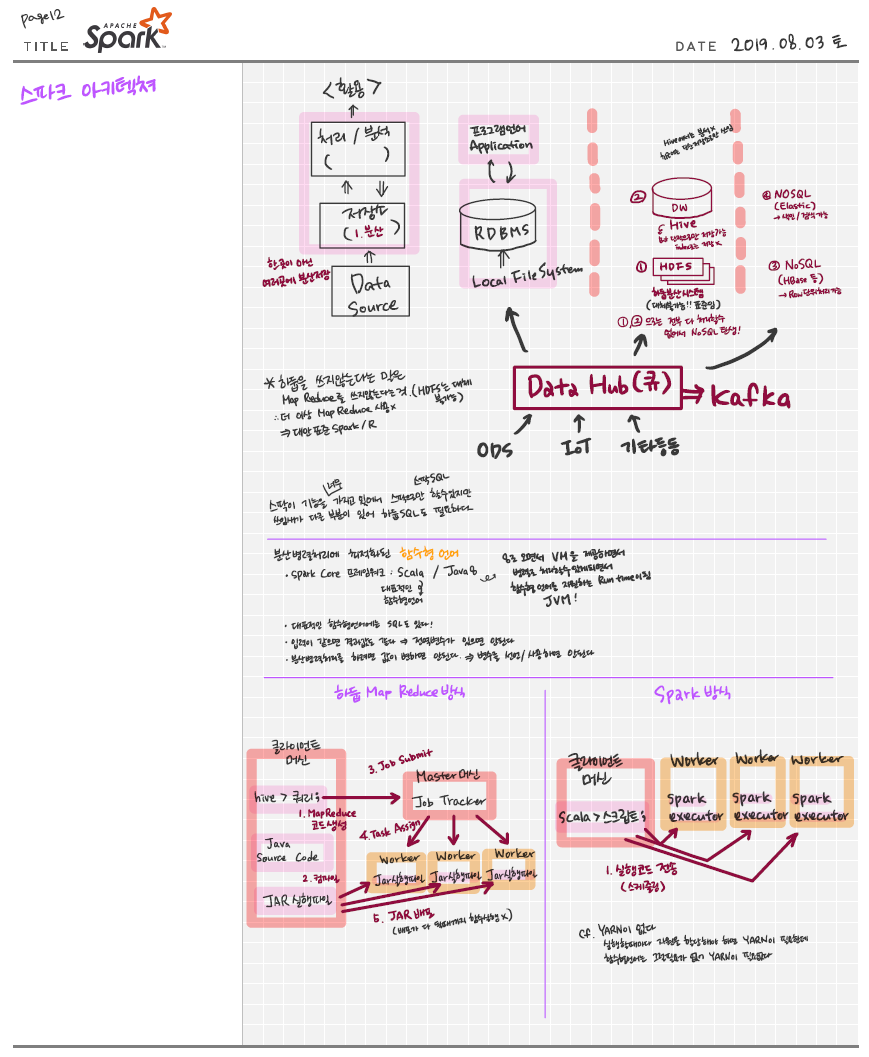 page12
TITLE
APACHE
Spark
DATE 2019.08.03 토
스파크 아키텍쳐
<활용>
처리 / 분석
( )
저장소
(1. 분산)
한곳이 아닌
여러곳에 분산저장
Data
Source
프로그램언어
Application
RDBMS
Local File System
②
DW
Hive
①
HDFS
하둡분산시스템
(대체불가능!! 표준임)
④ NOSQL
(Elastic)
→ 색인/검색가능
③ NoSQL
(HBase 등)
→ Row단위처리가능
①,② 으로는 전부 다 처리할수
없어서 NoSQL 탄생!
Data Hub(큐)
⇒ Kafka
ODS
IoT
기타등등
* 하둡을 쓰지않는다는 말은
Map Reduce를 쓰지않는다는것. (HDFS는 대체
불가능)
∴ 더 이상 Map Reduce 사용x
⇒ 대안 표준 Spark / R
너무
스팍SQL
스팍이 기능을 가지고 있어서 스팍으로만 할수있지만
쓰임새가 다른 부분이 있어 하둡SQL도 필요하다.
분산병렬처리에 최적화된 함수형 언어
· Spark Core 프레임워크 : Scala / Java8
대표적인
함수형언어
8로 오면서 VM을 제공하면서
병렬로 처리할수있게되면서
함수형 언어를 지원하는 Run time이됨
JVM!
· 대표적인 함수형언어에는 SQL도 있다!
· 입력이 같으면 결과값도 같다 ⇒ 전역변수가 있으면 안된다
· 분산병렬처리를 하려면 값이 변하면 안된다. ⇒ 변수를 선언/사용하면 안된다
하둡 Map Reduce 방식
클라이언트
머신
hive > 쿼리;
1. MapReduce
코드생성
Java
Source Code
2. 컴파일
JAR 실행파일
3. Job Submit
Master머신
Job Tracker
4. Task Assign
Worker
Jar실행파일
Worker
Jar실행파일
Worker
Jar실행파일
5. JAR 배포
(배포가 다 될때까지 함수실행 x)
Spark 방식
클라이언트
머신
Scala > 스크립트;
Worker
Spark
executor
Worker
Spark
executor
Worker
Spark
executor
1. 실행코드 전송
(스케줄링)
cf. YARN이 없다
실행할때마다 자원을 할당해야 하면 YARN이 필요한데
함수형언어는 그럴필요가 없기 YARN이 필요없다